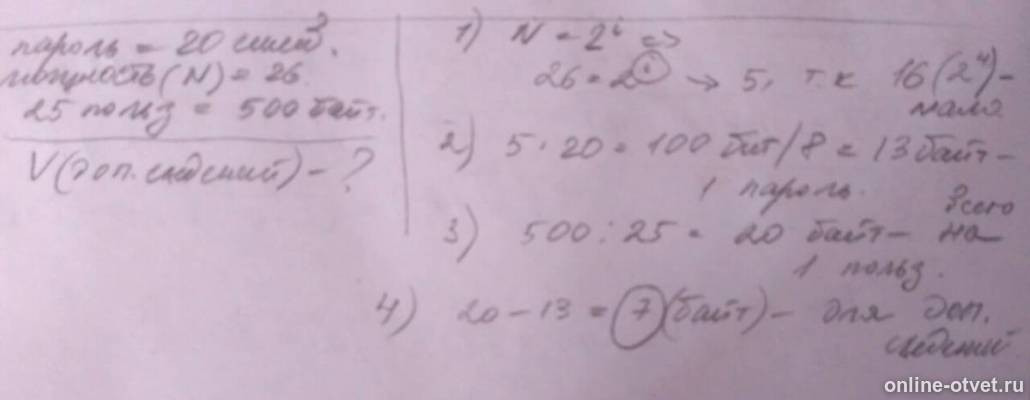 пароль = 20 симв.
мощность (N) = 26.
25 польз = 500 байт.
V(доп. сведений) - ?
1) N = 2^i =>
26 = 2^i → 5, т.к 16 (2^4) -
мало
2) 5 · 20 = 100 бит / 8 = 13 байт -
1 пароль.
3) 500 : 25 = 20 байт - всего на
1 польз.
4) 20 - 13 = 7 (байт) - для доп.
сведений
online-otvet.ru